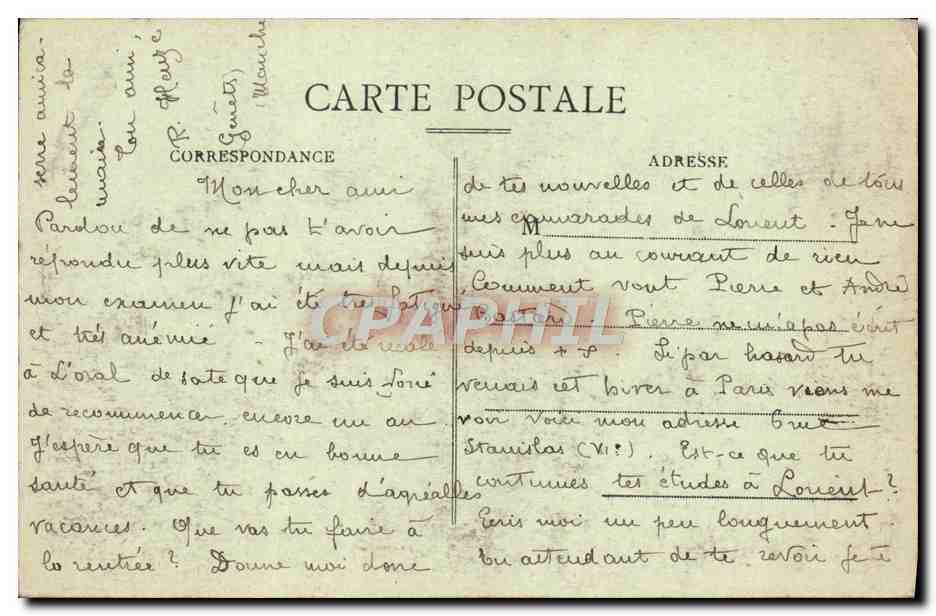 CARTE POSTALE
CORRESPONDANCE
Mon cher ami
Pardon de ne pas t'avoir
répondu plus vite mais depuis
mon examen j'ai été très fatigué
et très anémié - J'ai été recalé
à l'oral de sorte que je suis forcé
de recommencer encore un an.
J'espère que tu es en bonne
santé et que tu passes d'agréables
vacances. Que vas tu faire à
la rentrée ? Donne moi donc
ADRESSE
M
de tes nouvelles et de celles de tous
mes camarades de Lorient. Je ne
suis plus au courant de rien
Comment vont Pierre et André
Castard Pierre ne m'a pas écrit
depuis
Si par hasard tu
venais cet hiver à Paris viens me
voir voici mon adresse 6 rue
Stanislas (VIe). Est-ce que tu
continues tes études à Lorient ?
Ecris moi un peu longuement.
En attendant de te revoir je te
serre amica-
lement la
main.
Ton ami,
R.
Genêts,
(Manche
CPAPHIL